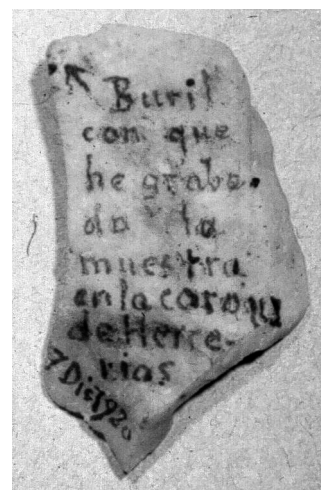 Buril
con que
he graba-
do la
muestra
en la caraqu
de Herre-
rias
7 Dic 1920